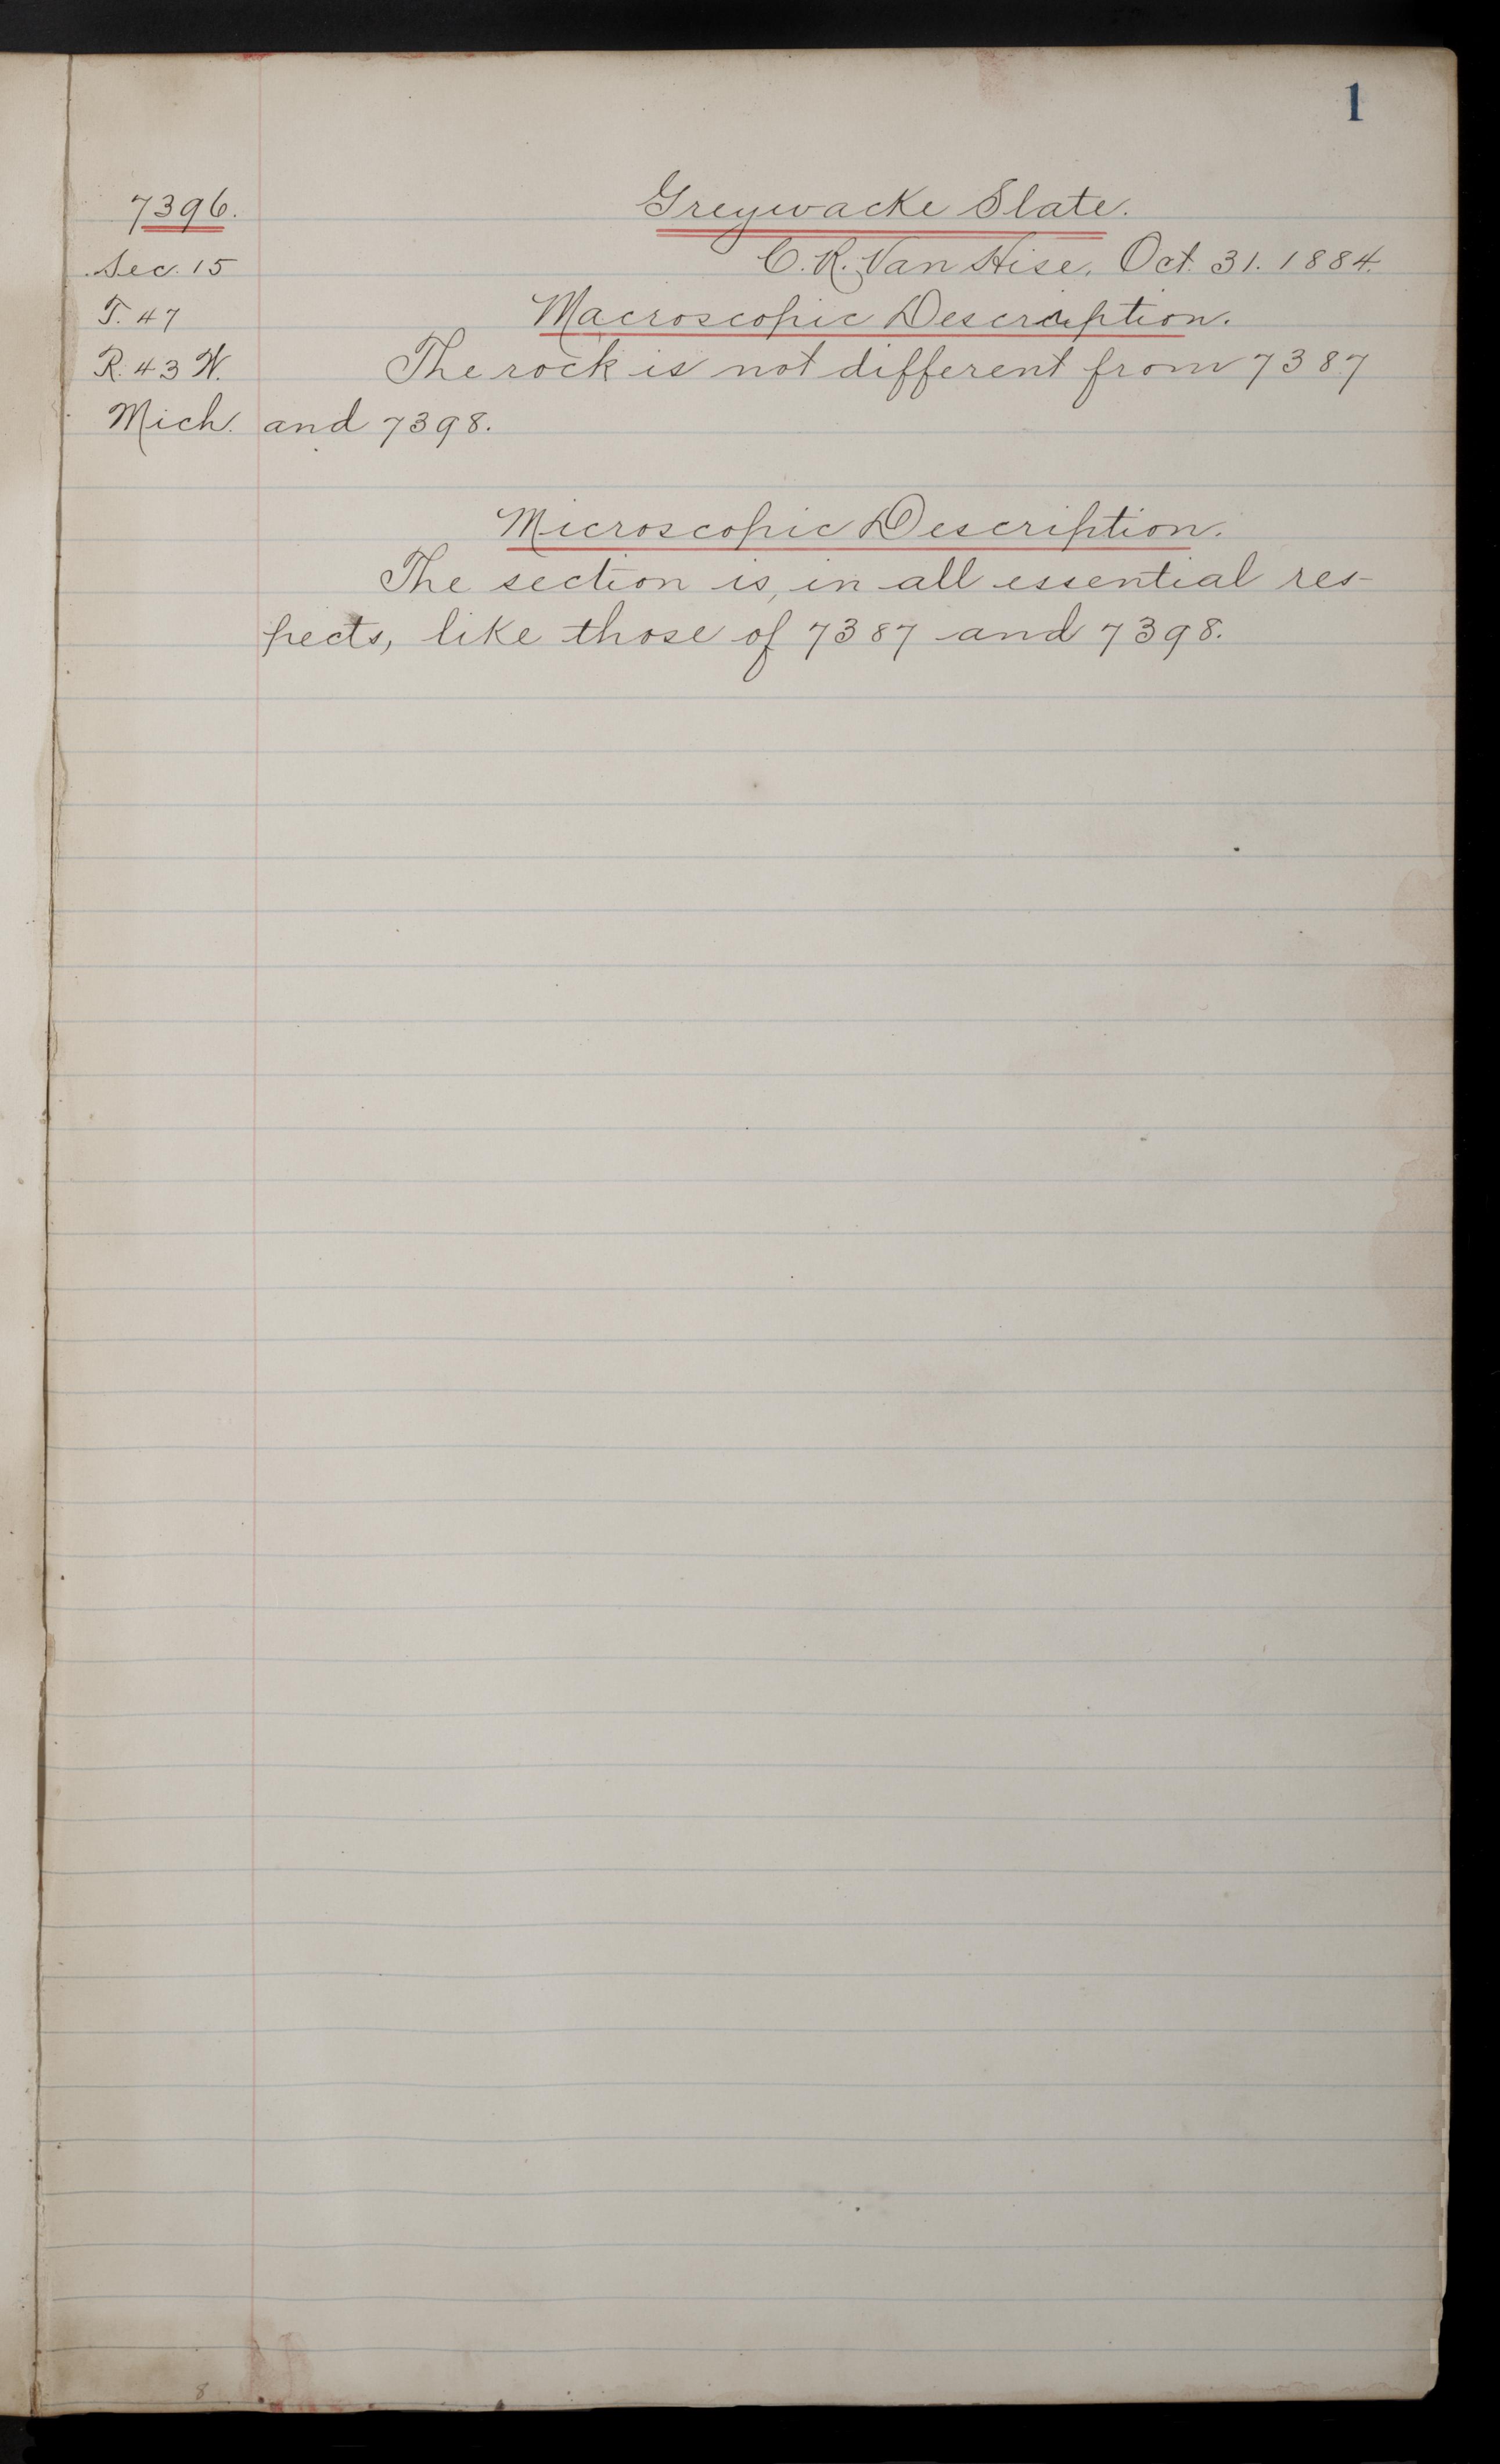 1
7396. Greywacke Slate.
Sec. 15 C. R. Van Hise, Oct. 31. 1884.
T. 47 Macroscopic Description.
R. 43 W. The rock is not different from 7387
Mich. and 7398.
Microscopic Description.
The section is, in all essential res-
pects, like those of 7387 and 7398.
8